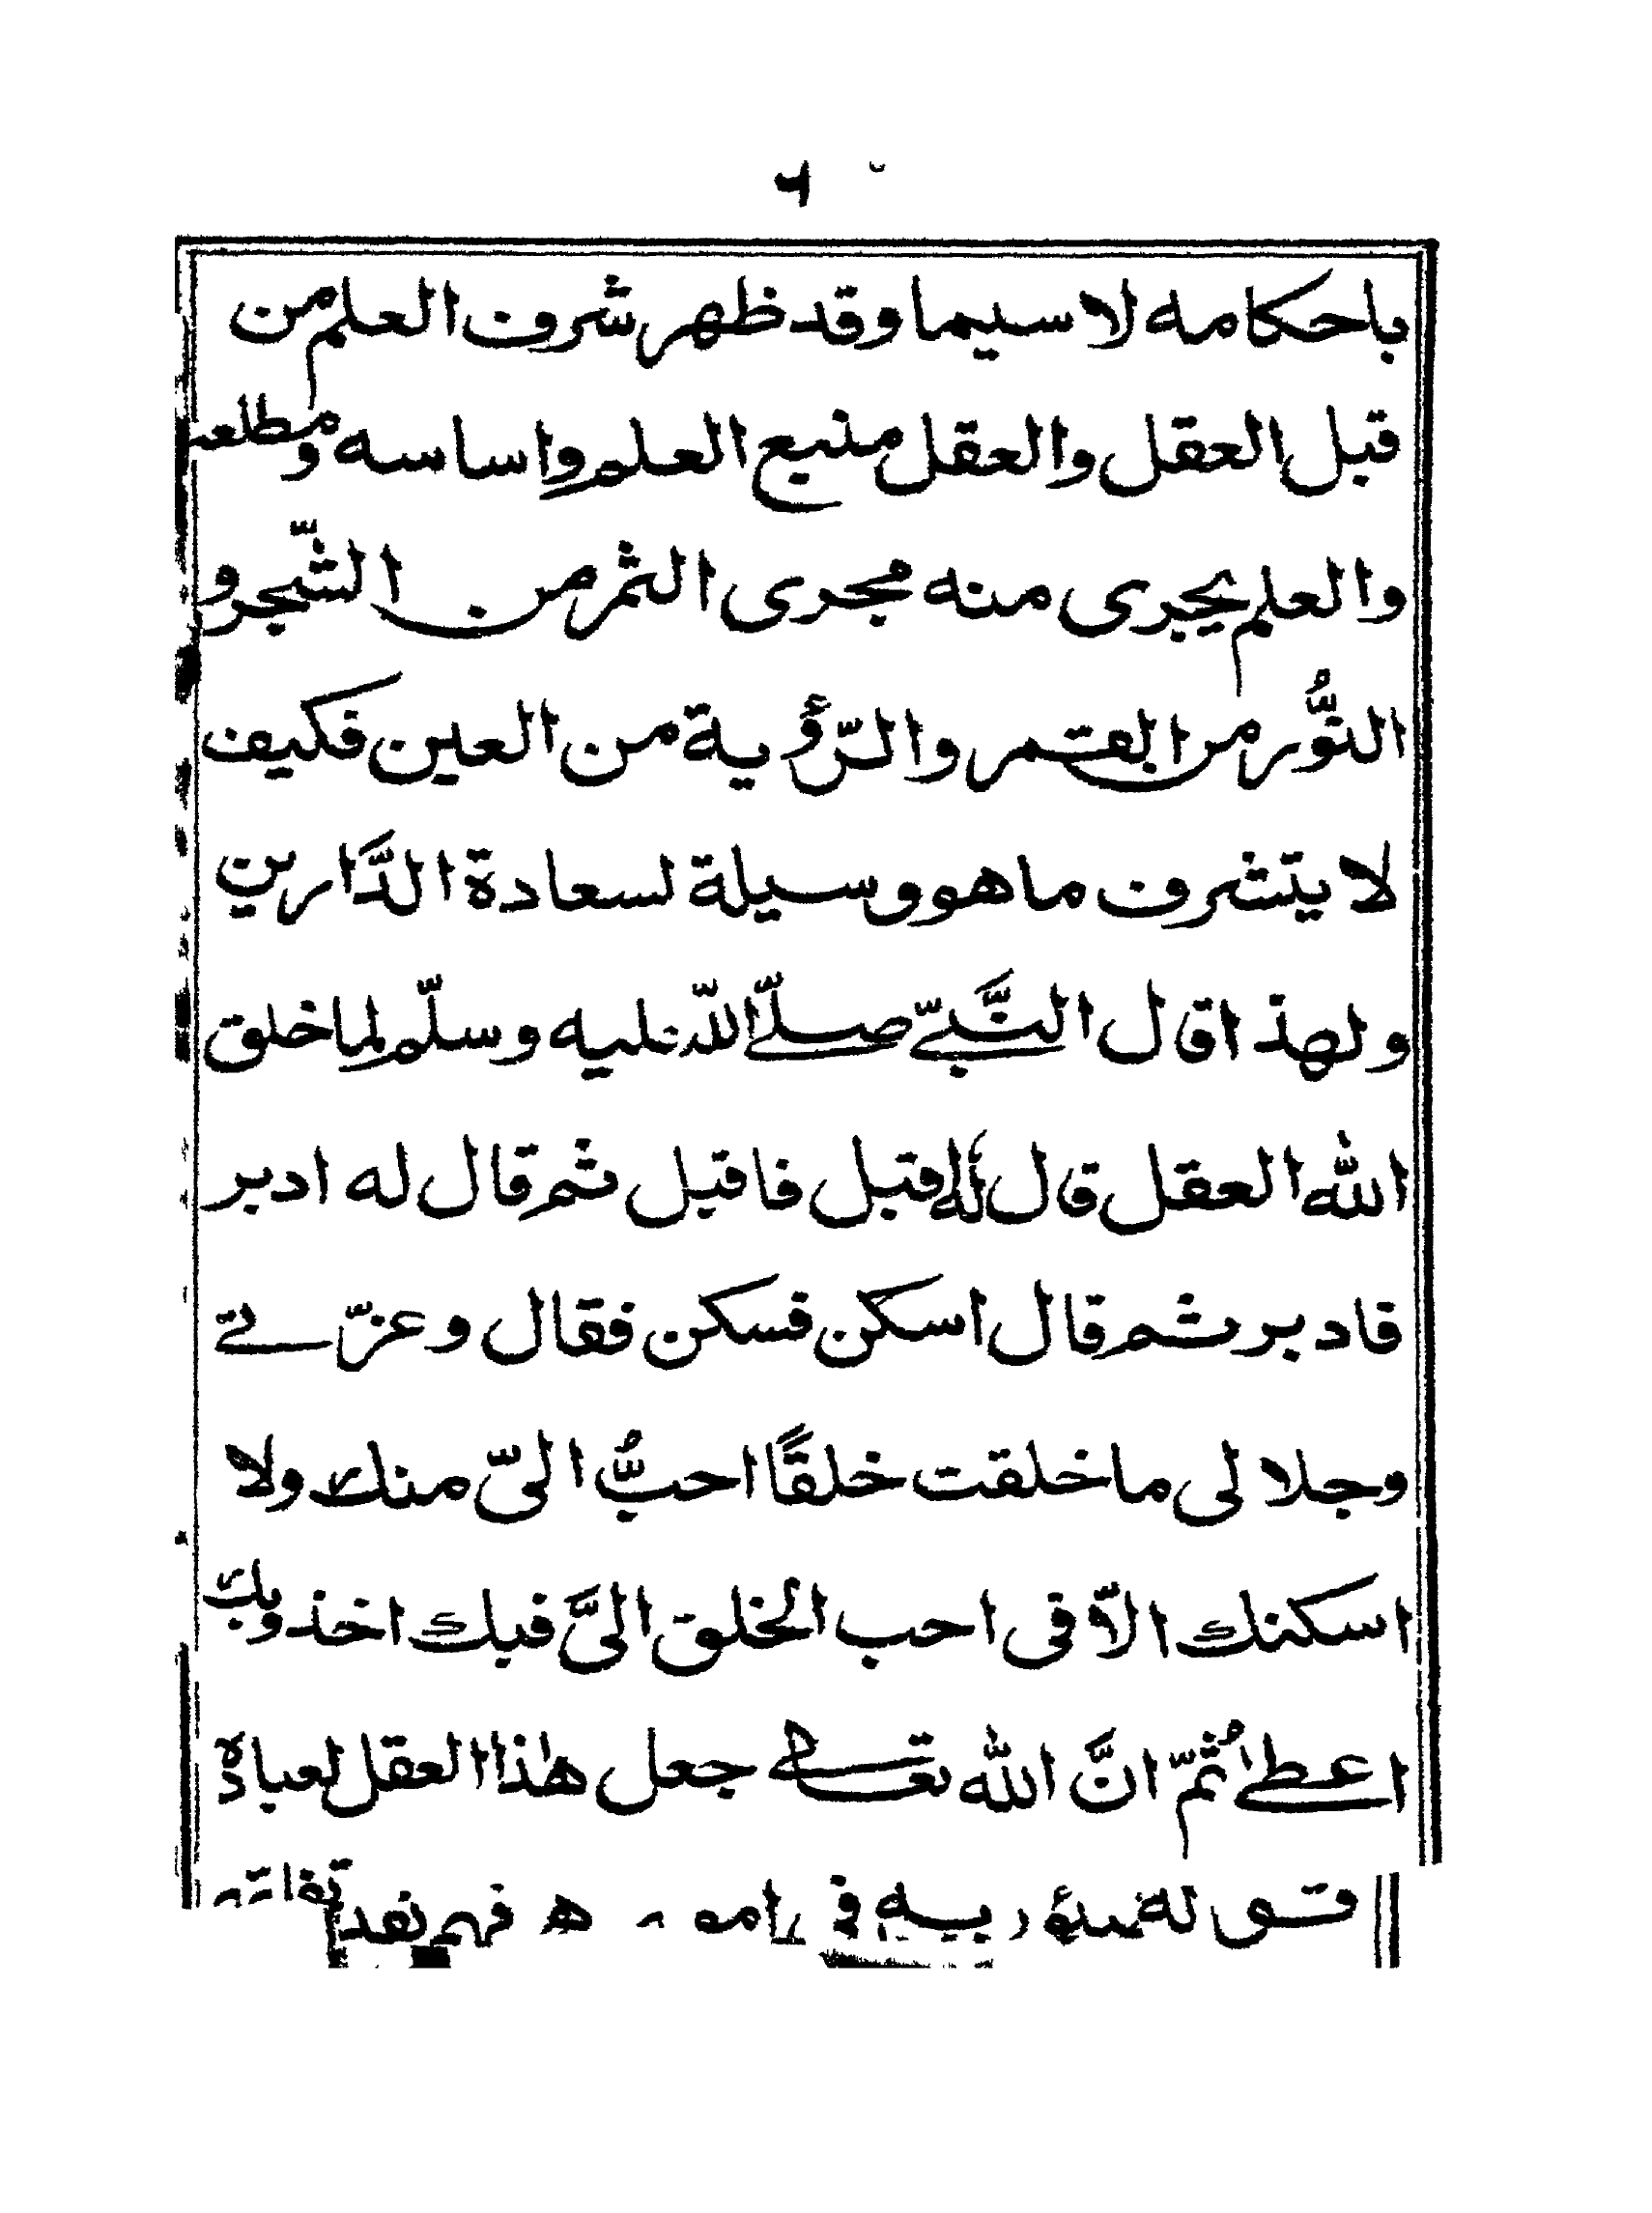 باحكامه لا سيما وقد ظهر شرف العلم من
قبل العقل والعقل منبع العلم واساسه ومطلعه
والعلم يجرى منه مجرى الثمر من الشّجر و
النُّور من القمر والرّؤية من العين فكيف
لا يتشرف ما هو وسيلة لسعادة الدَّارين
ولهذا قال النَّبيّ صلّے اللّه عليه وسلّم لما خلق
اللّه العقل قال له اقبل فاقبل ثم قال له ادبر
فادبر ثم قال اسكن فسكن فقال وعزّتے
وجلالى ما خلقت خلقًا احبُّ الىّ منك ولا
اسكنك الاّ فى احب الخلق الىَّ فيك اخذ وبك
اعطے ثُمّ انَّ اللّه تعالے جعل هٰذا العقل لعباده
فى